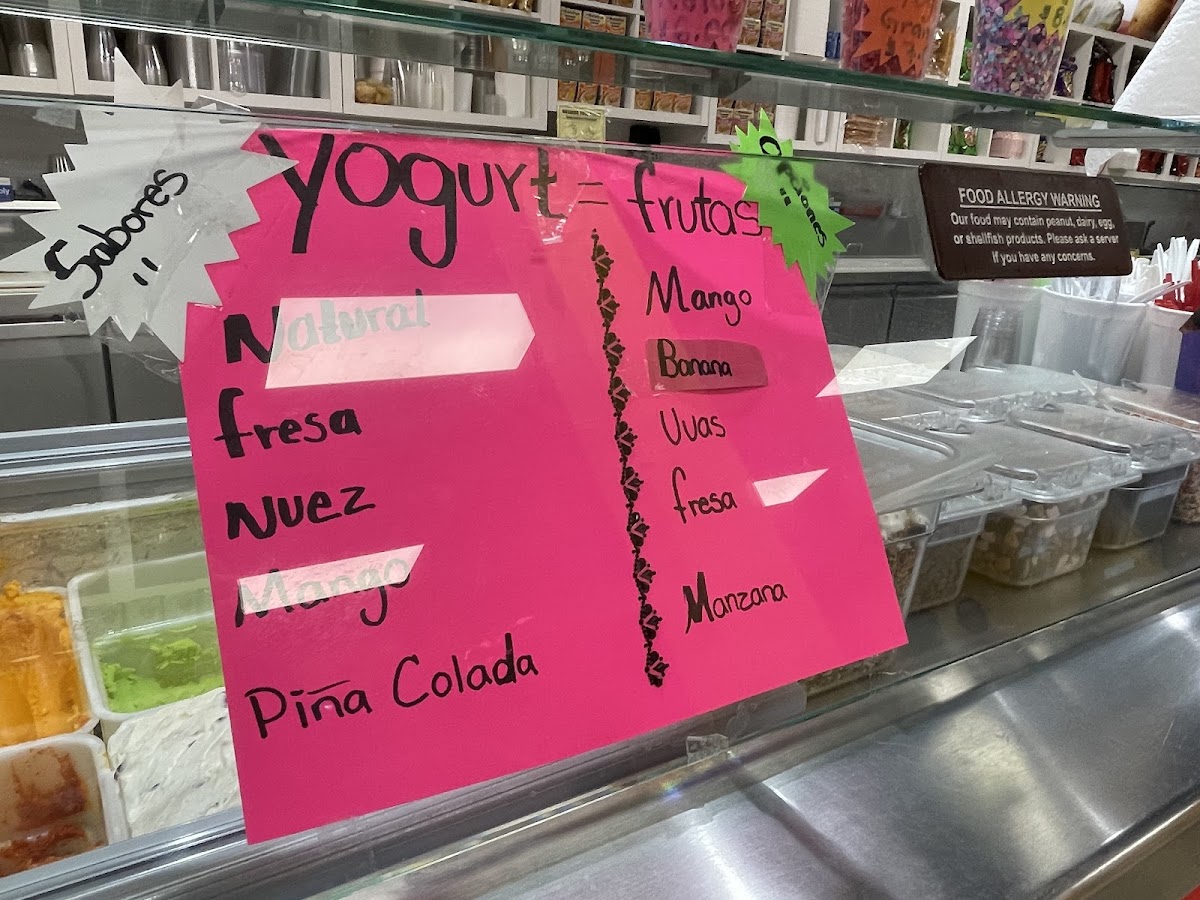 Sabores
yogurt = frutas
Natural
fresa
Nuez
Mango
Piña Colada
Mango
Banana
Uvas
fresa
Manzana
FOOD ALLERGY WARNING
Our food may contain peanut, dairy, egg,
or shellfish products. Please ask a server
if you have any concerns.